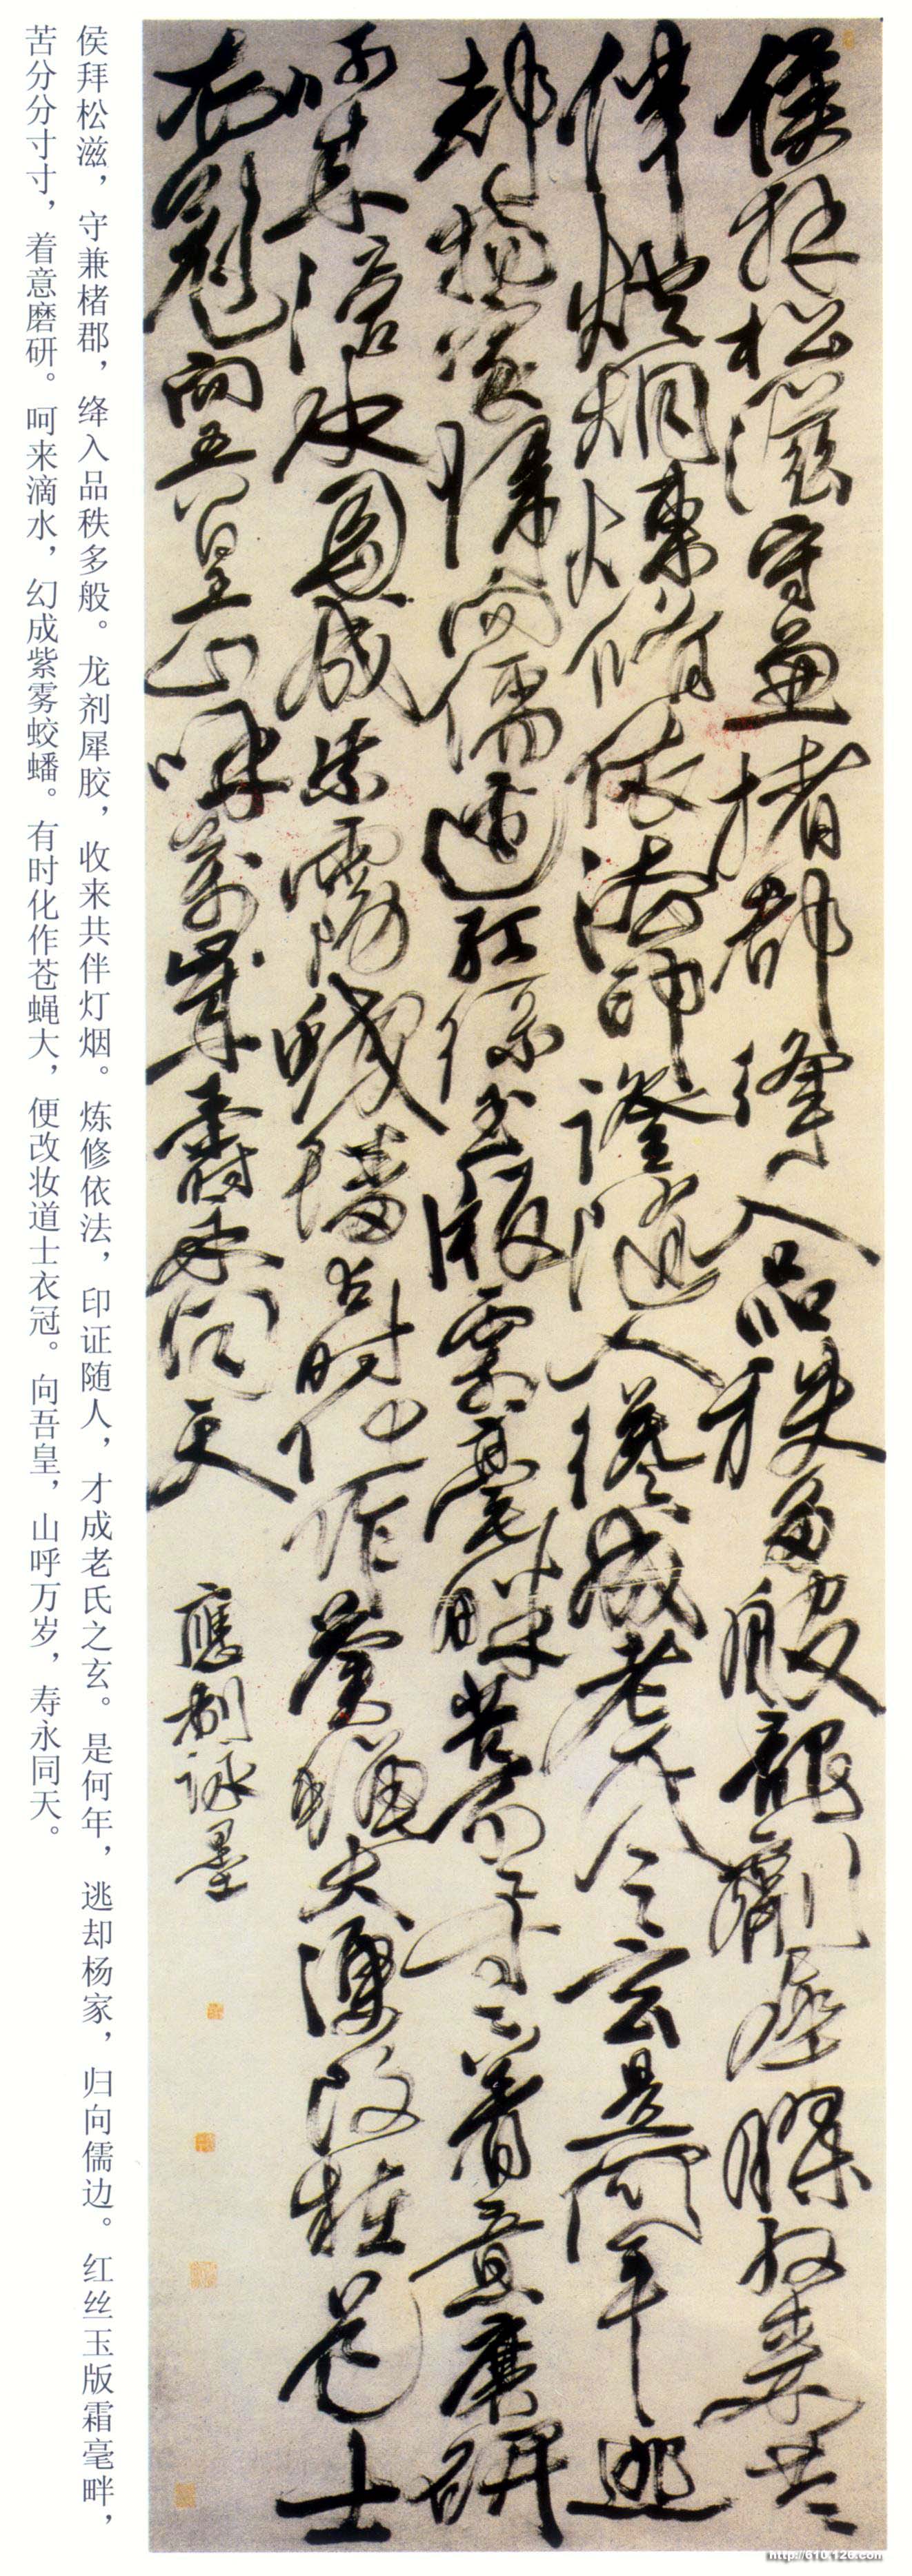 侯拜松滋守兼楮郡絳入品秩多般龍劑犀膠收來共
伴燈烟煉修依法印證隨人纔成老氏之玄是何年逃
却楊家歸向儒邊紅絲玉版霜毫畔苦分分寸寸着意磨研
呵來滴水幻成紫霧蛟蟠有時化作蒼蠅大便改粧道士
衣冠向吾皇山呼萬歲壽永同天
應制詠墨
侯拜松滋，守兼楮郡，绛入品秩多般。龙剂犀胶，收来共伴灯烟。炼修依法，印证随人，才成老氏之玄。是何年，逃却杨家，归向儒边。红丝玉版霜毫畔，
苦分分寸寸，着意磨研。呵来滴水，幻成紫雾蛟蟠。有时化作苍蝇大，便改妆道士衣冠。向吾皇，山呼万岁，寿永同天。
http://610.126.com